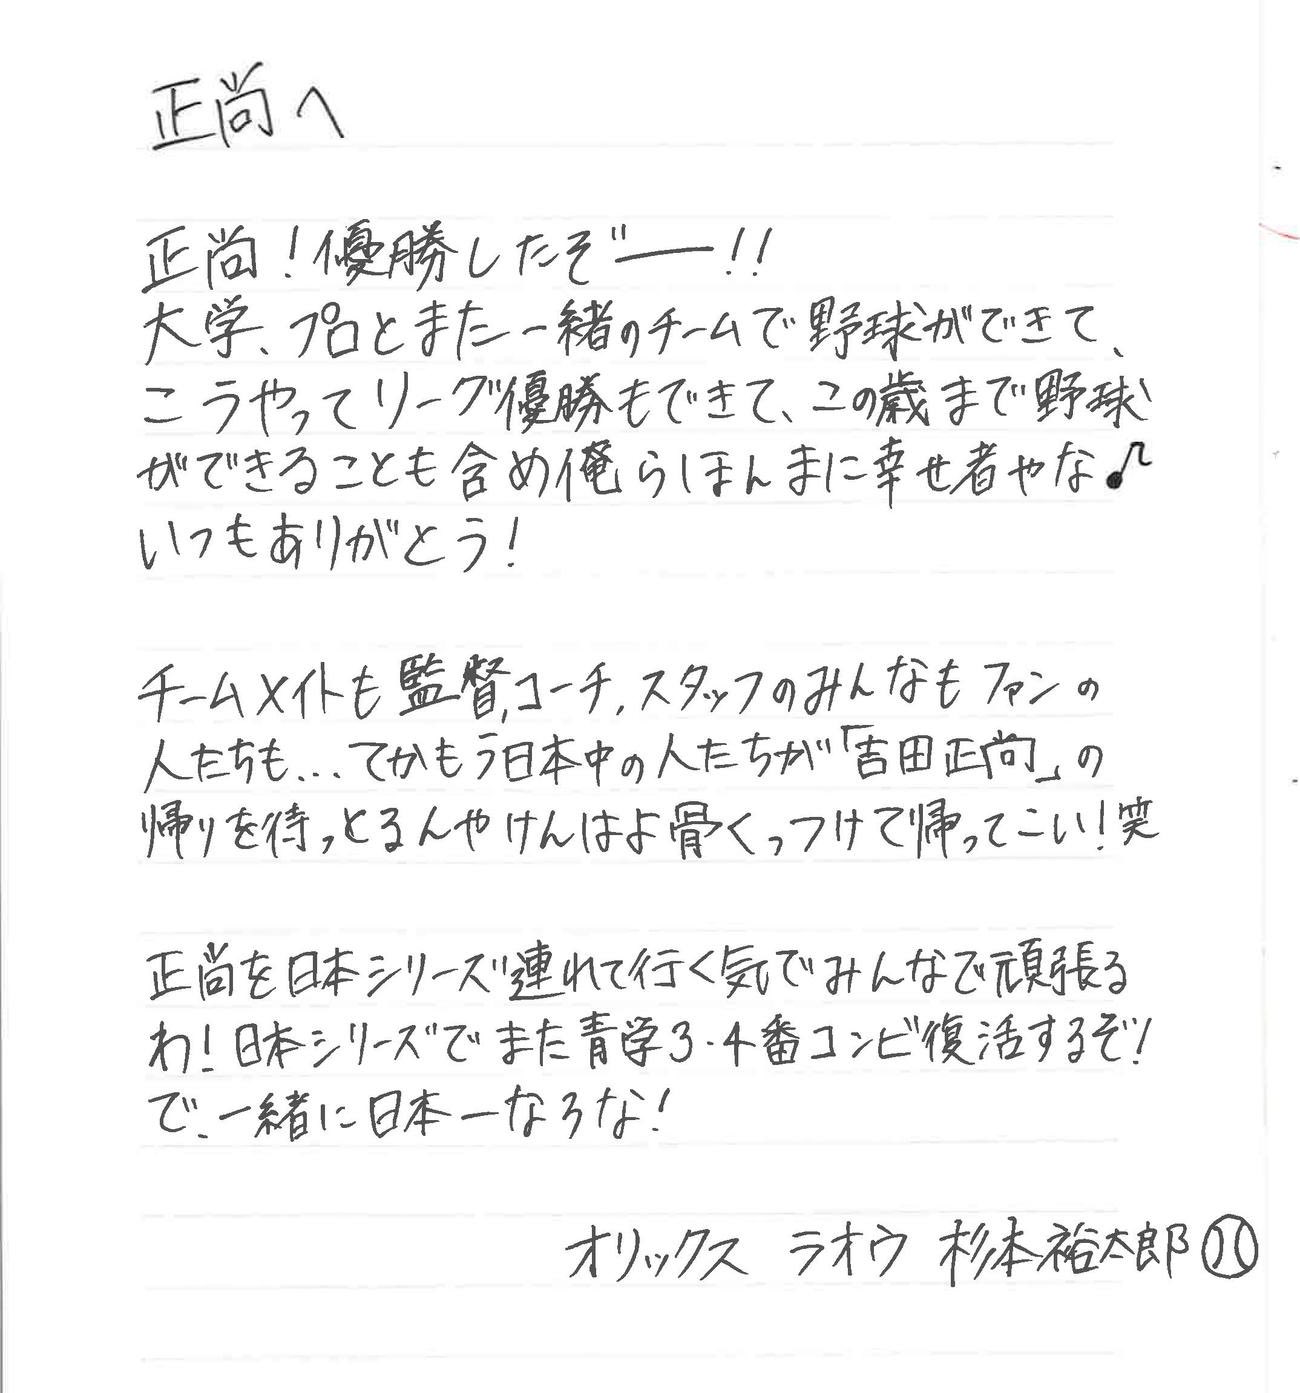 正尚へ
正尚！優勝したぞー!!
大学、プロとまた一緒のチームで野球ができて、
こうやってリーグ優勝もできて、この歳まで野球
ができることも含め俺らほんまに幸せ者やな♪
いつもありがとう！
チームメイトも監督,コーチ,スタッフのみんなもファンの
人たちも...てかもう日本中の人たちが「吉田正尚」の
帰りを待っとるんやけんはよ骨くっつけて帰ってこい！笑
正尚を日本シリーズ連れて行く気でみんなで頑張る
わ！日本シリーズでまた青学3・4番コンビ復活するぞ！
で、一緒に日本一なろな！
オリックス ラオウ 杉本裕太郎